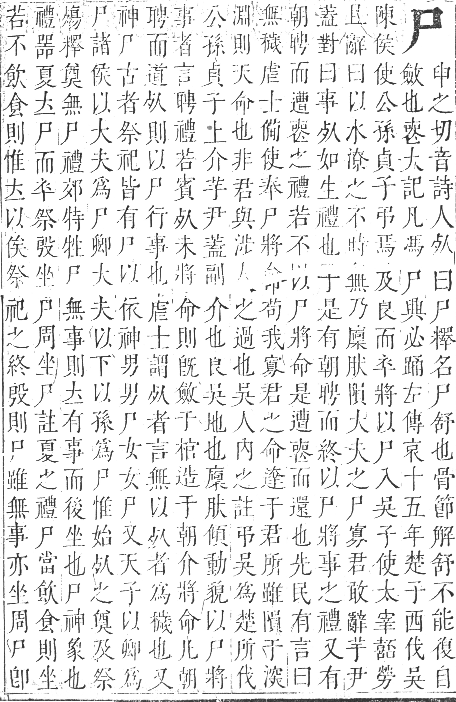 尸
申之切音詩人死曰尸釋名尸舒也骨節解舒不能復自
斂也喪大記凡馮尸興必踊左傳哀十五年楚子西伐吳
陳侯使公孫貞子弔焉及良而卒將以尸入吳子使太宰嚭勞
且辭曰以水潦之不時無乃廩肰隕大夫之尸寡君敢辭芋尹
蓋對曰事死如生禮也于是有朝聘而終以尸將事之禮又有
朝聘而遭喪之禮若不以尸將命是遭喪而還也先民有言曰
無穢虐士備使奉尸將命苟我寡君之命逹于君所雖隕于深
淵則天命也非君與涉人之過也吳人內之註弔吳為楚所伐
公孫貞子上介芋尹蓋副介也良吳地也廩肰傾動貌以尸將
事者言聘禮若賓死未將命則旣斂于棺造于朝介將命凡朝
聘而道死則以尸行事也虐士謂死者言無以死者為穢也又
神尸古者祭祀皆有尸以依神男男尸女女尸又天子以卿為
尸諸侯以大夫為尸卿大夫以下以孫為尸惟始死之奠及祭
殤釋奠無尸禮郊特牲尸無事則立有事而後坐也尸神象也
禮器夏立尸而卒祭殷坐尸周坐尸註夏之禮尸當飲食則坐
若不飲食則惟立以俟祭祀之終殷則尸雖無事亦坐周尸卽